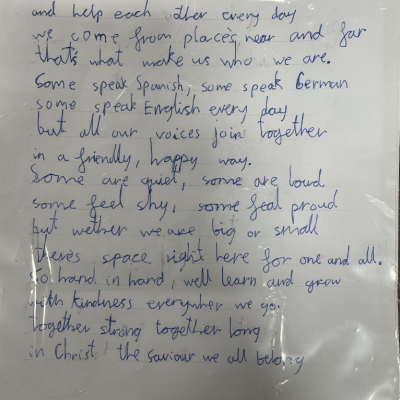 and help each other every day
we come from places, near and far
that's what make us who we are.
Some speak Spanish, some speak German
some speak English every day
but all our voices join together
in a friendly, happy way.
Some are quiet, some are loud
some feel shy, some feel proud
but wether we are big or small
theres space right here for one and all.
So hand in hand, we'll learn and grow
with kindness everywher we go.
together strong together long
in Christ the saviour we all belong